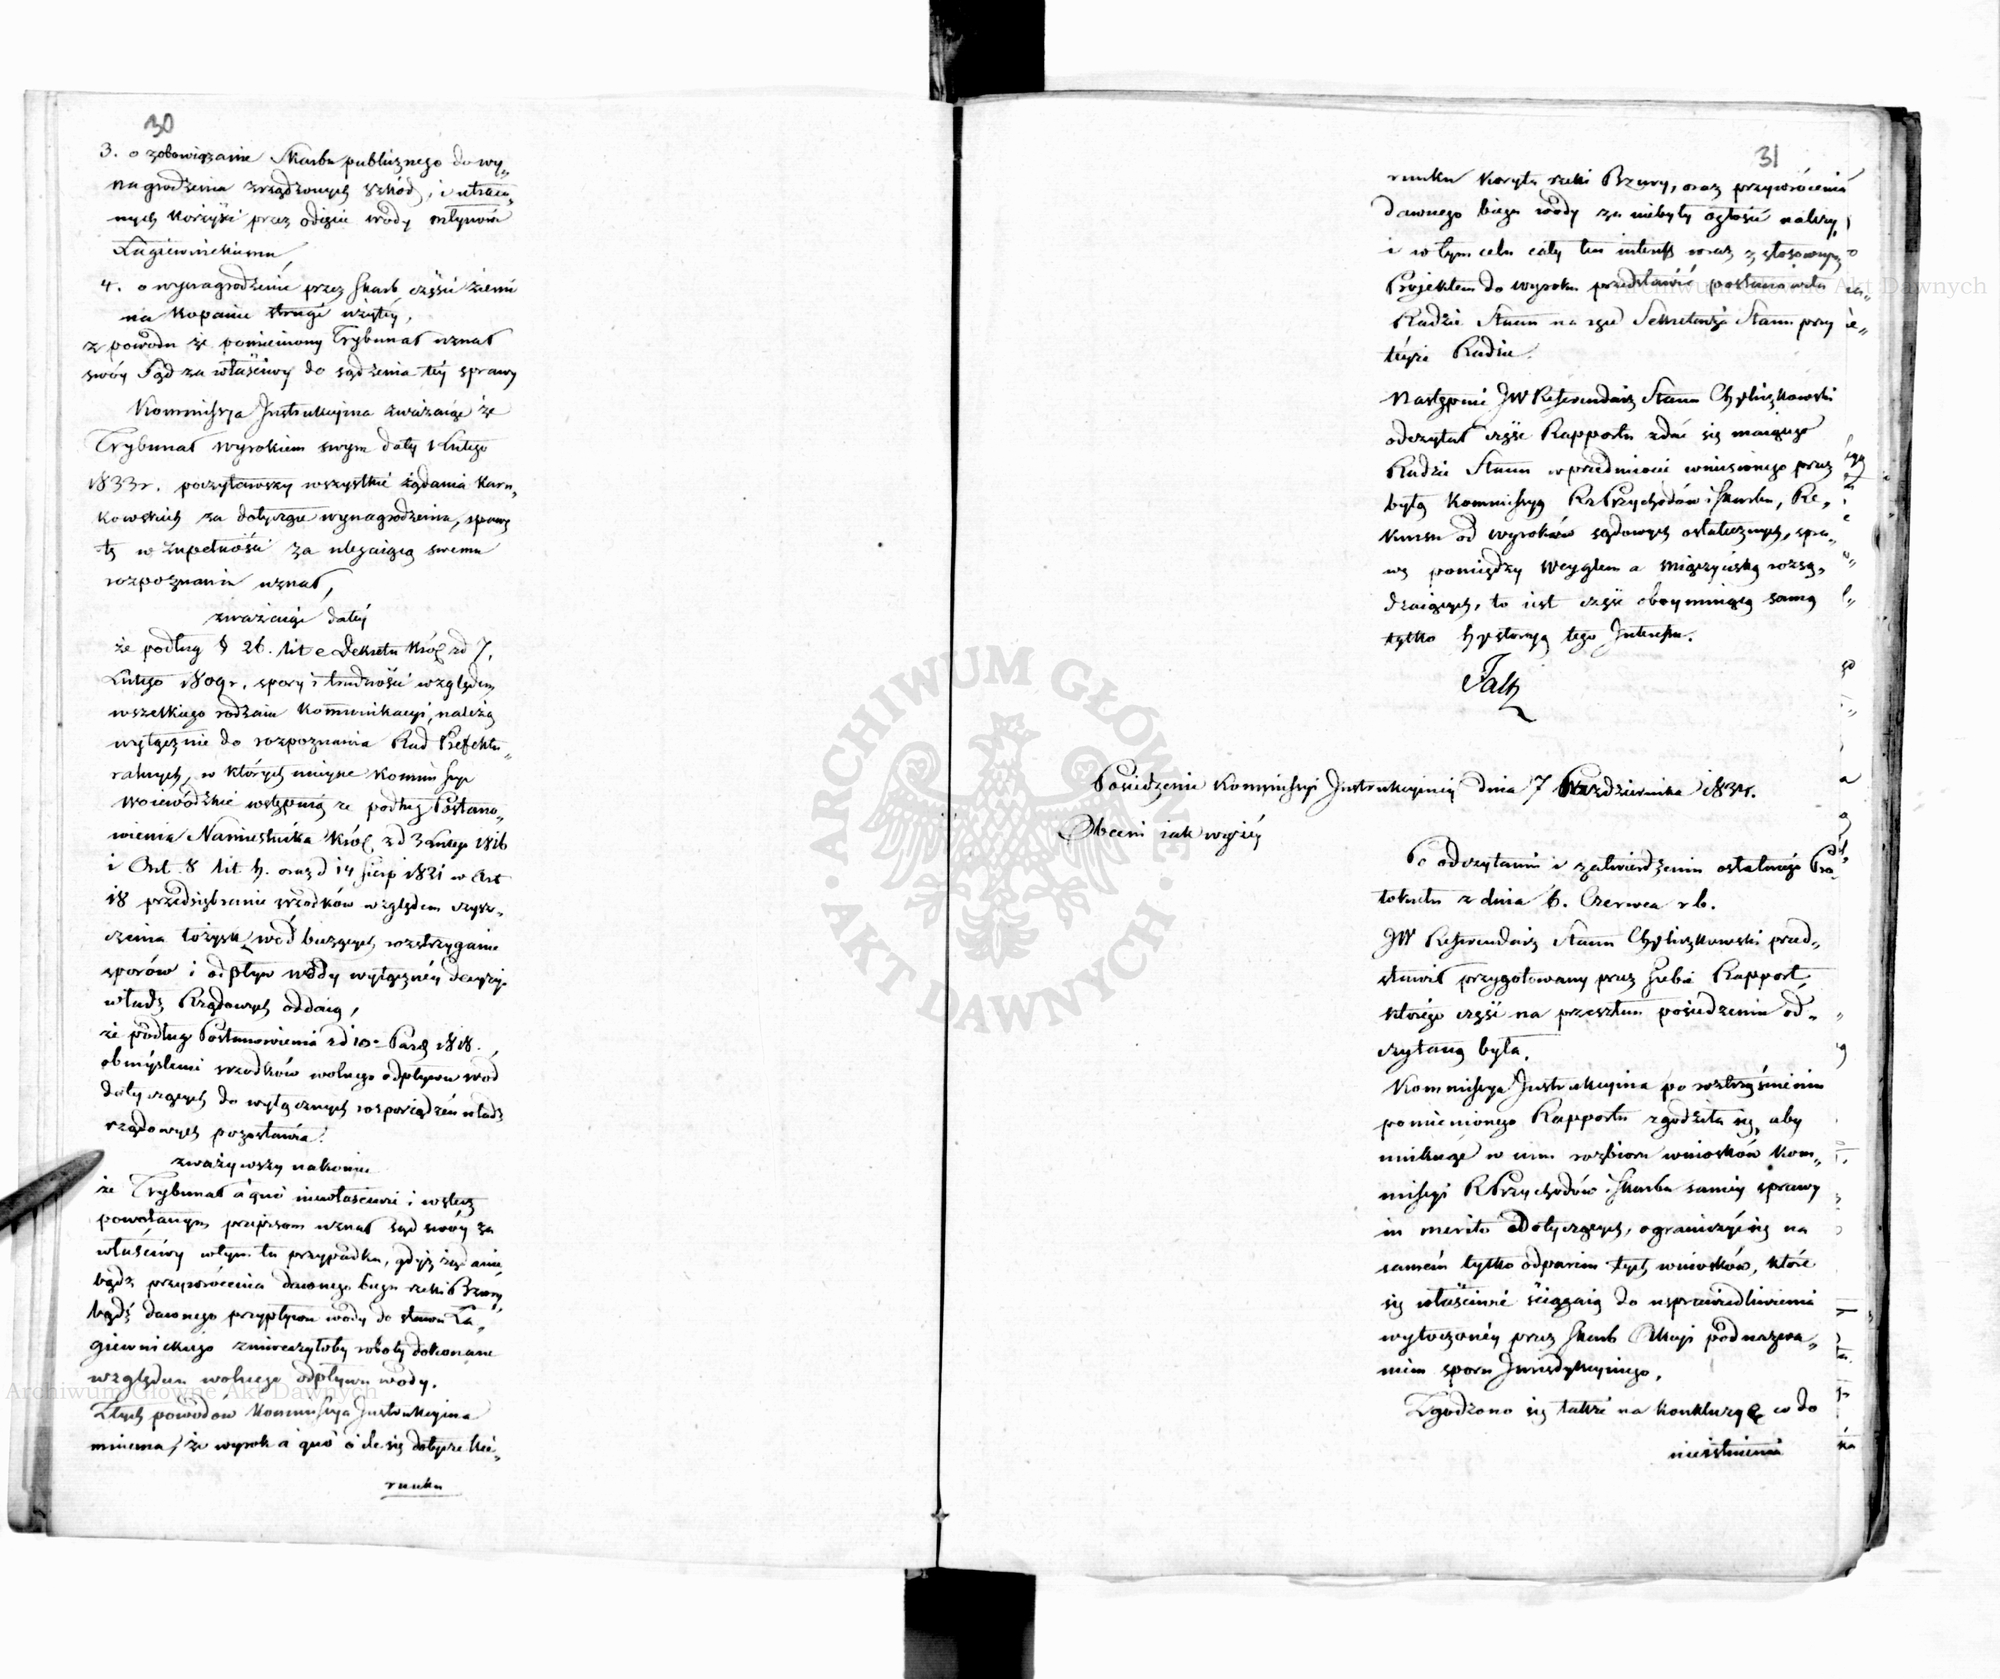 30
3. o zobowiązanie Skarbu publicznego do wy„
nagrodzenia zrządzonych szkód, i utraco„
nych korzyści przez odięcie wody młynowi
Łagiewnickiemu,
4. o wynagrodzenie przez Skarb części ziemi
na kopanie strugi użytéy,
z powodu że pomieniony Trybunał uznał
swóy Sąd za właściwy do sądzenia téy sprawy
Kommissya Instrukcyina zważaiąc że
Trybunał wyrokiem swym daty 1 Lutego
1833 r. poczytawszy wszystkie żądania Karn„
kowskich za dotyczące wynagrodzenia, sprawę
tę w zupełności za ulegaiącą swemu
rozpoznaniu uznał,
zważaiąc daléy
że podług § 26. lit e Dekretu Król. z d 7.
Lutego 1809 r. spory i trudności względem
wszelkiego rodzaiu kommunikacyi, należą
wyłącznie do rozpoznania Rad Prefektu„
ralnych, w których mieysce Kommissye
Woiewódzkie wstąpiły ze podług Postano„
wienia Namiestnika Król. z d 3 Lutego 1816
i Art. 8 lit h. oraz d 14 Sierp 1821 w Art
18 przedsiębranie srzodków względem czysz„
czenia łożysk wód bieżących, rozstrzyganie
sporów i odpływ wody wyłącznéy decyzyi
władz Rządowych oddaią,
że podług Postanowienia z d 10 Paźd 1818.
obmyślenie srzodków wolnego odpływu wód
dotyczących do wyłącznych rosporządzeń władz
rządowych pozostawia.
zważywszy nakoniec
że Trybunał a quo niewłaściwie i wbrew
powołanym przepisom uznał sąd swóy za
właściwy w tym tu przypadku, gdyż żądanie
bądź przywrócenia dawnego biegu rzeki Bzury,
bądź dawnego przypływu wody do stawu Ła„
giewnickiego zniweczyłoby roboty dokonane
względem wolnego odpływu wody.
Z tych powodów Kommissya Instrukcyina
mniema, że wyrok a quo o ile się dotycze kie„
runku
31
runku koryta rzeki Bzury, oraz przywrócenia
dawnego biegu wody za niebyły ogłosić należy,
i w tym celu cały ten interess wraz z stosownym
Projektem do wyroku przedstawić postanowiła
Radzie Stanu na ręce Sekretarza Stanu przy
téyże Radzie.
Następnie JW Referendarz Stanu Chyliczkowski
odczytał część Rapportu zdać się maiącego
Radzie Stanu w przedmiocie wniesionego przez
byłą Kommissyą Rz Przychodów i Skarbu, Re„
kursu od wyroków sądowych ostatecznych, spra„
wę pomiędzy Weyglem a Miączyńską rozsą„
dzaiących, to iest część obeymuiącą samą
tylko hystoryą tego Interessu.
Falz
Posiedzenie Kommissyi Instrukcyinéy dnia 7 Października 1834 r.
Obecni iak wyżéy
Po odczytaniu i zatwierdzeniu ostatniego Pro„
tokułu z dnia 6. Czerwca r b.
JW Referendarz Stanu Chyliczkowski przed„
stawił przygotowany przez siebie Rapport
którego część na przeszłem posiedzeniu od„
czytaną była.
Kommissya Instrukcyina po roztrząśnieniu
pomienionego Rapportu zgodziła się, aby
unikaiąc w nim rozbioru wniosków Kom„
missyi R Przychodów i Skarbu saméy sprawy
in merito dotyczących, ograniczyć się na
samém tylko odparciu tych wniosków, które
się właściwie ściągaią do usprawiedliwienia
wytoczonéy przez Skarb Akcyi pod nazwa„
niem sporu Jurisdykcyinego.
Zgodzono się także na konkluzyą co do
nieistnienia
ARCHIWUM GŁÓWNE · AKT DAWNYCH ·
Archiwum Główne Akt Dawnych
Archiwum Główne Akt Dawnych